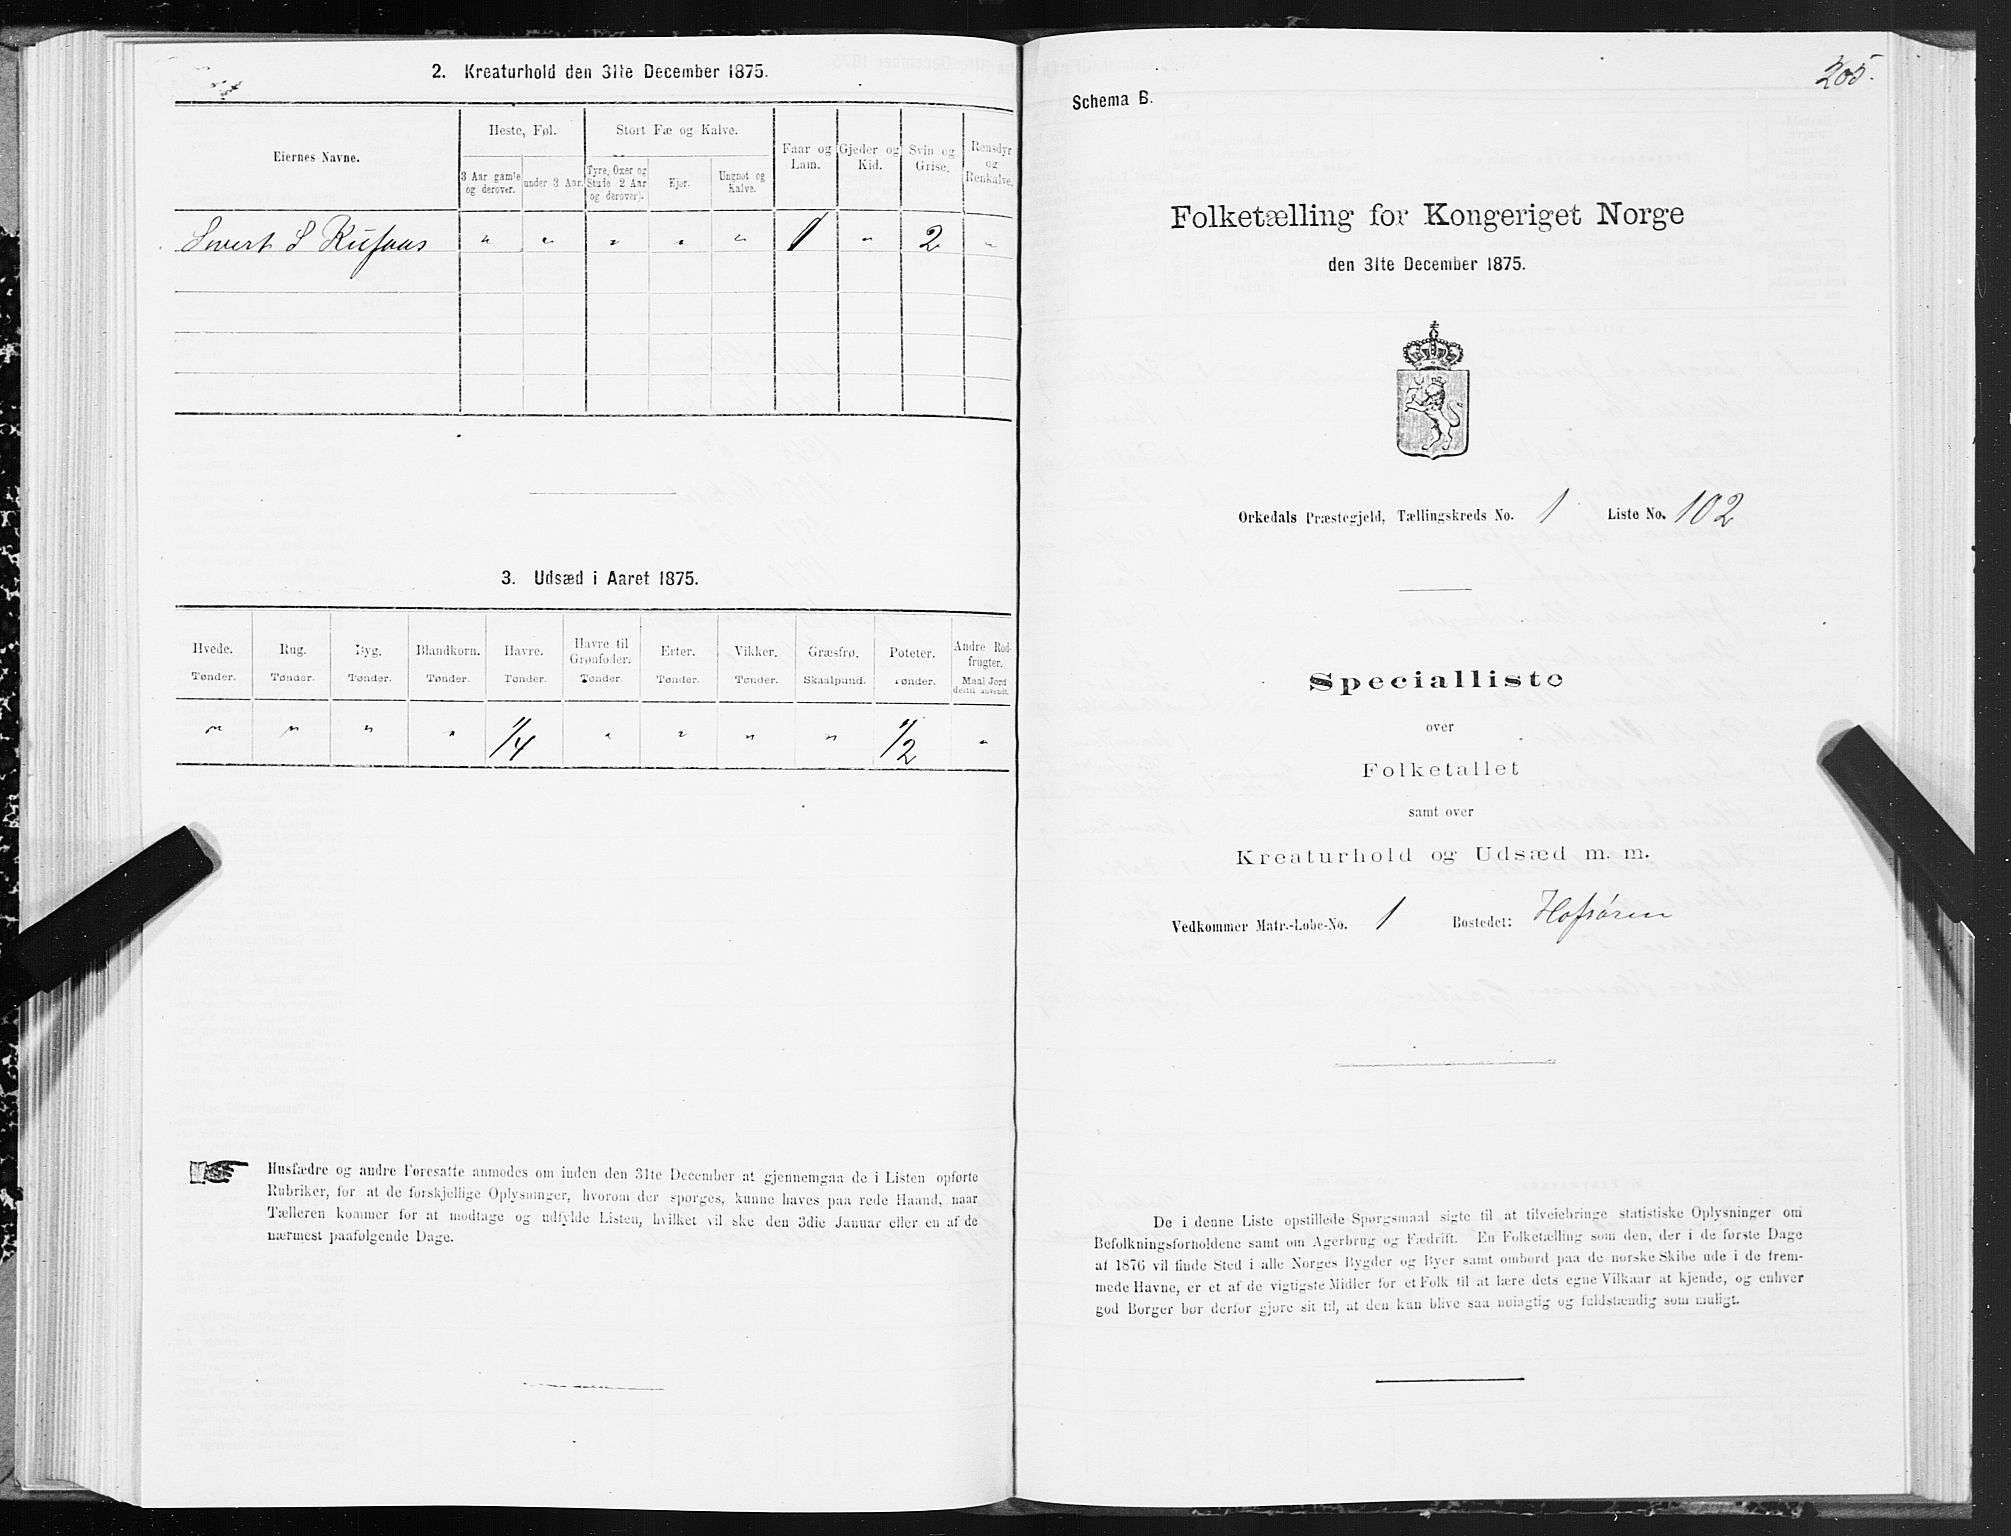 2. Kreaturhold den 31te December 1875.
Eiernes Navne.
Heste, Føl.
Stort Fæ og Kalve.
Faar og Lam.
Gjeder og Kid.
Svin og Grise.
Rensdyr og Renkalve.
3 Aar gamle og derover.
under 3 Aar.
Tyre, Oxer og Stude 2 Aar og derover).
Kjør.
Ungnøt og Kalve.
Sivert S Rufaas " " " " " 1 " 2 "
3. Udsæd i Aaret 1875.
Hvede. Rug. Byg. Blandkorn. Havre. Havre til Grønfoder. Erter. Vikker. Græsfrø. Poteter. Andre Rodfrugter.
Tønder. Tønder. Tønder. Tønder. Tønder. Tønder. Tønder. Tønder. Skaalpund. Tønder. Maal Jord dertil anvendt.
" " " " 1/4 " " " " 1/2 "
Husfædre og andre Foresatte anmodes om inden den 31te December at gjennemgaa de i Listen opførte
Rubriker, for at de forskjellige Oplysninger, hvorom der spørges, kunne haves paa rede Haand, naar
Tælleren kommer for at modtage og udfylde Listen, hvilket vil ske den 3die Januar eller en af de
nærmest paafølgende Dage.
205.
Schema B.
Folketælling for Kongeriget Norge
den 31te December 1875.
Orkedals Præstegjeld, Tællingskreds No. 1 Liste No. 102
Specialliste
over
Folketallet
samt over
Kreaturhold og Udsæd m. m.
Vedkommer Matr.-Løbe-No. 1 Bostedet: Hofsøren
De i denne Liste opstillede Spørgsmaal sigte til at tilveiebringe statistiske Oplysninger om
Befolkningsforholdene samt om Agerbrug og Fædrift. En Folketælling som den, der i de første Dage
af 1876 vil finde Sted i alle Norges Bygder og Byer samt ombord paa de norske Skibe ude i de frem-
mede Havne, er et af de vigtigste Midler for et Folk til at lære dets egne Vilkaar at kjende, og enhver
god Borger bør derfor gjøre sit til, at den kan blive saa nøiagtig og fuldstændig som muligt.